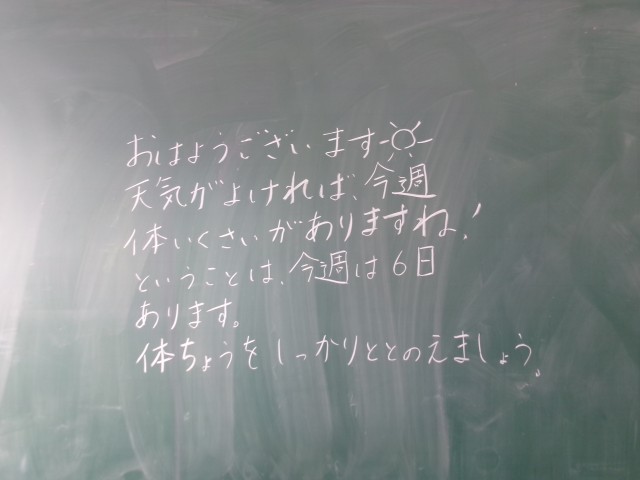 おはようございます☀
天気がよければ、今週
体いくさいがありますね!
ということは、今週は6日
あります。
体ちょうをしっかりととのえましょう。